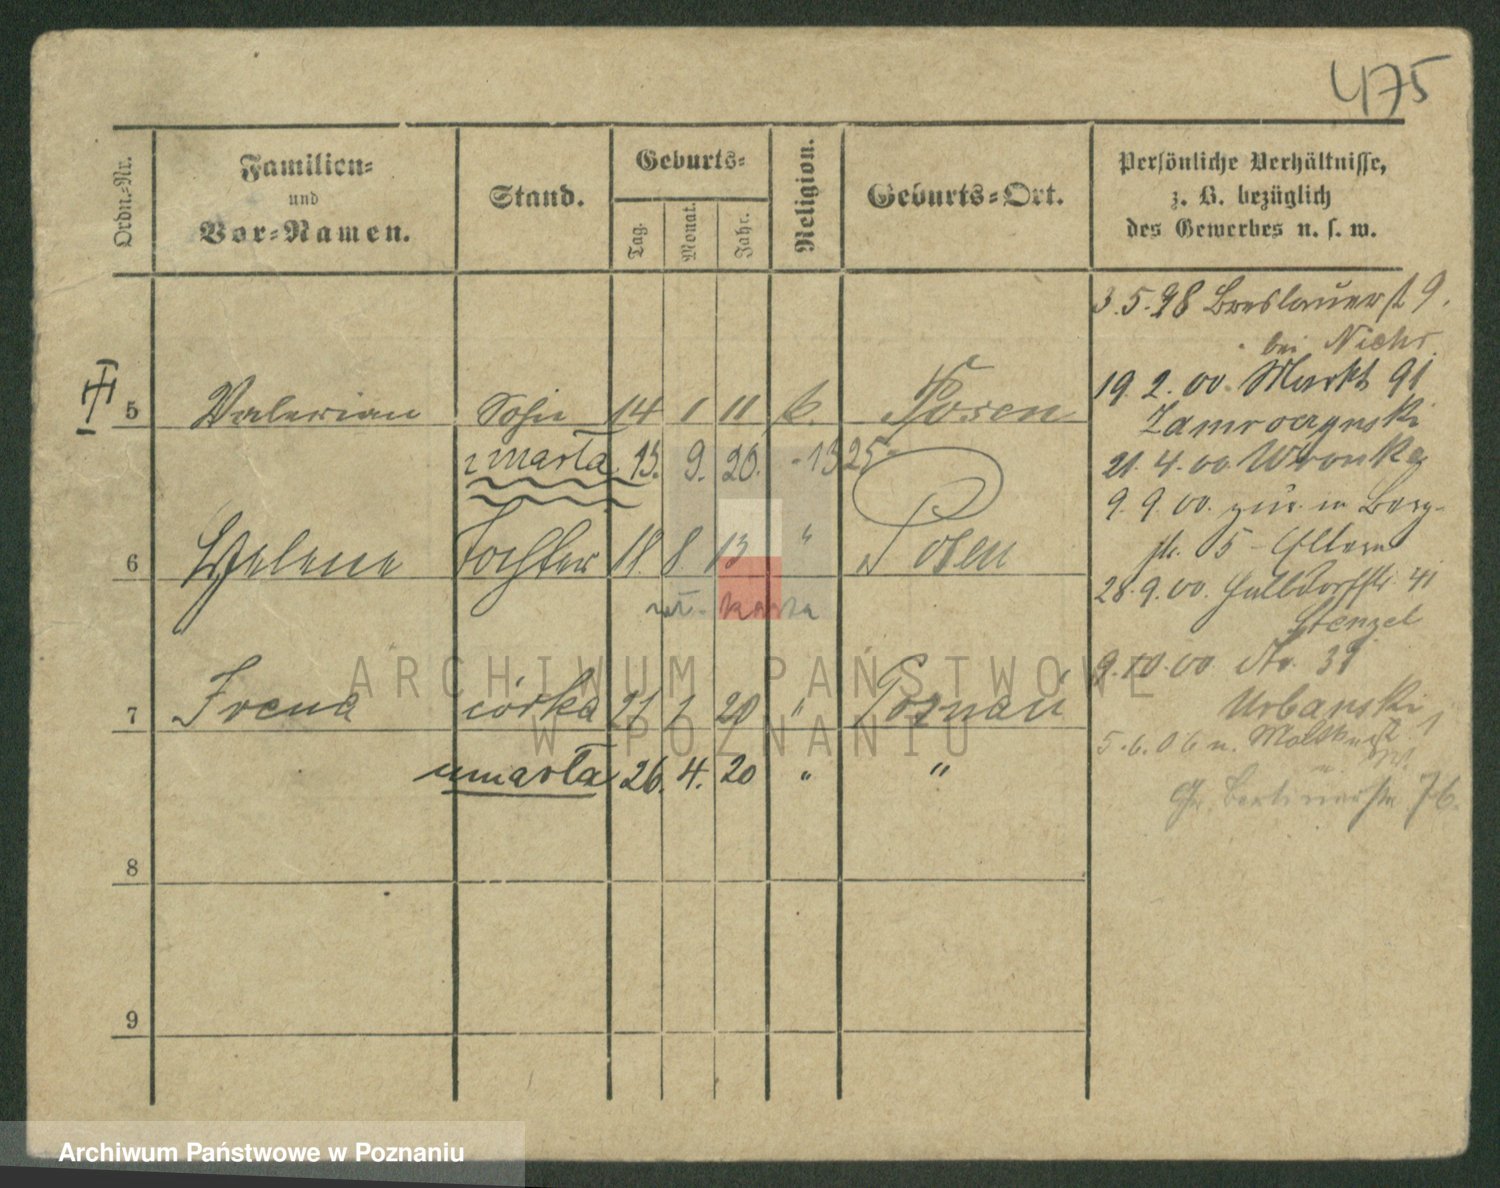 475
Ordn.-Nr.
Familien-
und
Vor-Namen.
Stand.
Geburts-
Tag.
Monat.
Jahr.
Religion.
Geburts-Ort.
Persönliche Verhältnisse,
z. B. bezüglich
des Gewerbes u. s. w.
5 Valerian Sohn 14 1 11 k. Posen
zmarła 15. 9. 20. - 1325 -
6 Helene Tochter 18. 8 13 " Posen
karta
7 Irena córka 21 1 20 " Poznań
umarła 26. 4. 20 " "
8
9
3.5.98 Breslauerst 9.
bei
19. 2. 00. Markt 91
21. 4. 00 Wronka
9. 9. 00. zur. in Berg-
str. 5 - Eltern
28. 9. 00. 41
Stenzel
9. 10. 00 Nr. 39
Urbanski
5. 6. 06 n.
Gr. Berlinerstr 76.
ARCHIWUM PAŃSTWOWE
W POZNANIU
Archiwum Państwowe w Poznaniu